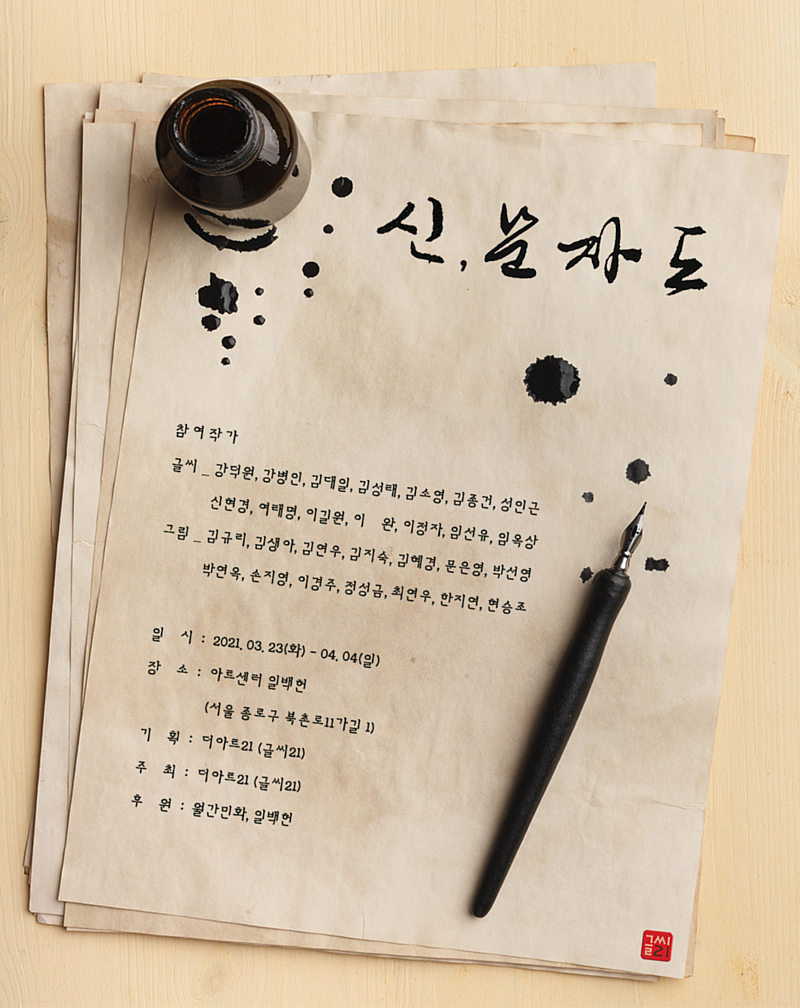 신, 문자도
참여작가
글씨 _ 강덕원, 강병인, 김대일, 김성태, 김소영, 김종건, 성인근
신현경, 여태명, 이길원, 이 완, 이정자, 임선유, 임옥상
그림 _ 김규리, 김생아, 김연우, 김지숙, 김혜경, 문은영, 박선영
박연옥, 손지영, 이경주, 정성금, 최연우, 한지연, 현승조
일 시 : 2021. 03. 23(화) - 04. 04(일)
장 소 : 아트센터 일백헌
(서울 종로구 북촌로11가길 1)
기 획 : 더아트21 (글씨21)
주 최 : 더아트21 (글씨21)
후 원 : 월간민화, 일백헌
글씨
21